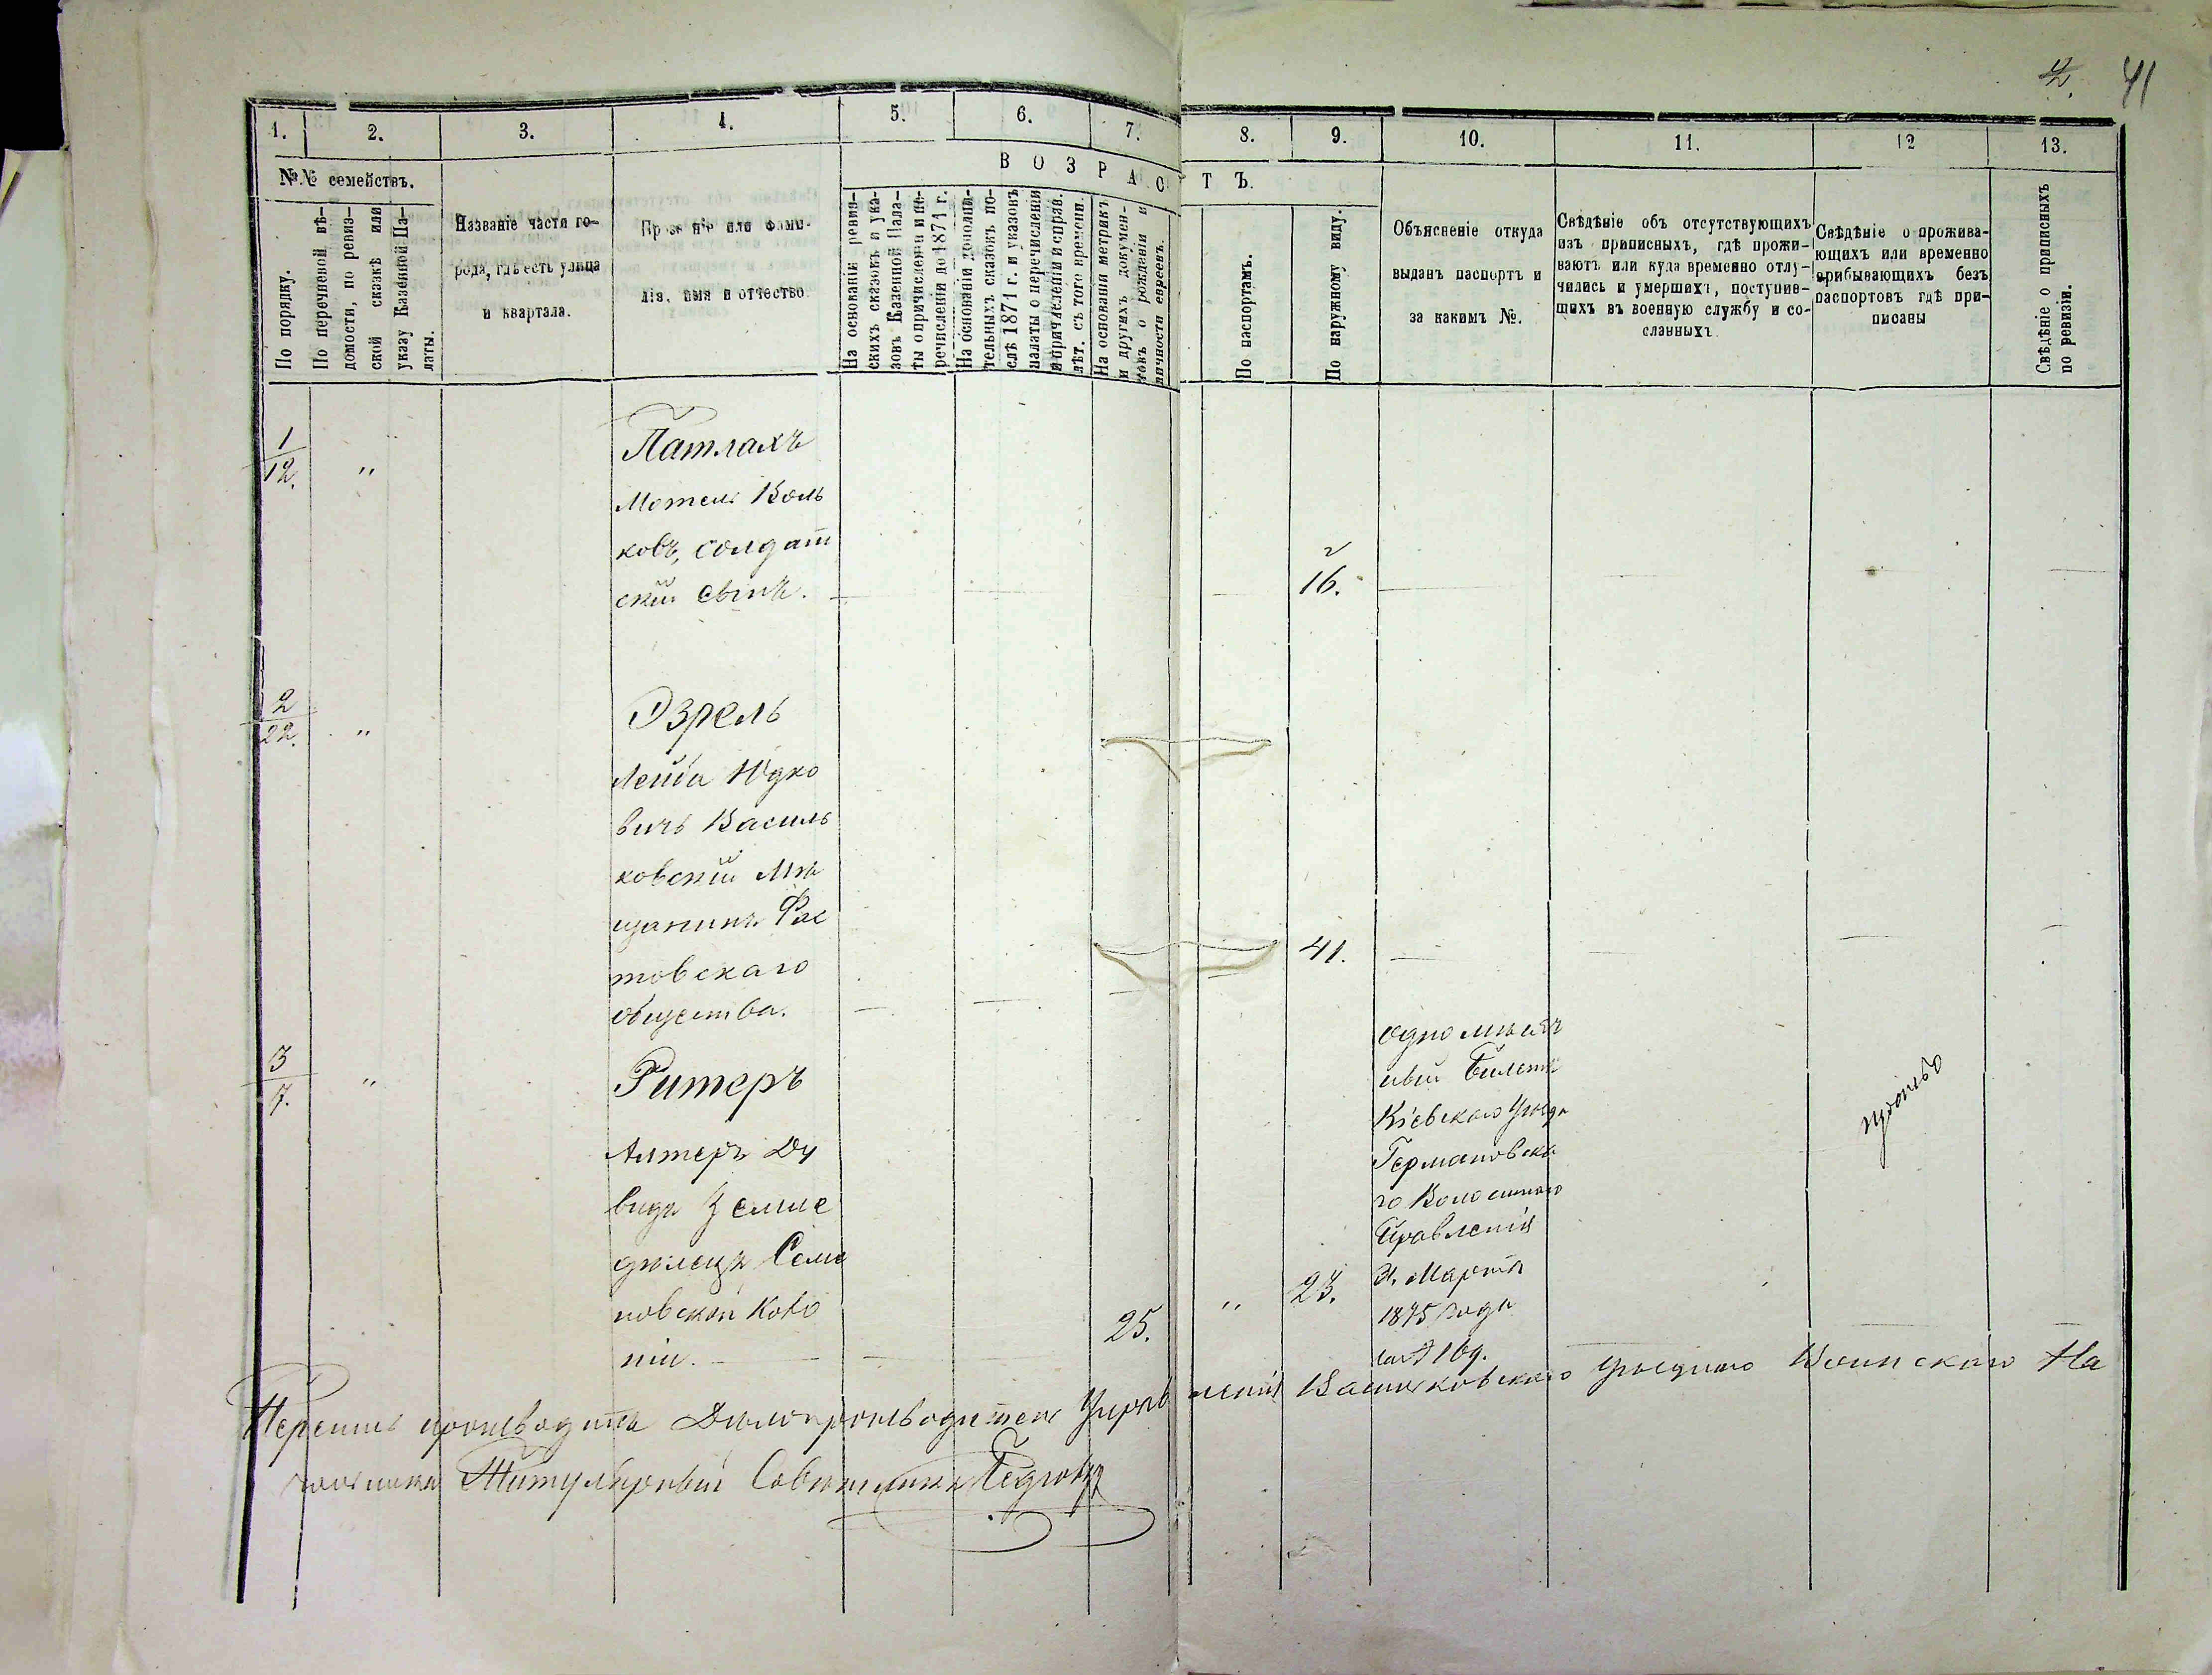 41
1.
2.
3.
4.
5.
6.
7.
8.
9.
10.
11.
12
13.
№№ семействъ.
По порядку.
По перечневой вѣ-
домости, по ревиз-
ской сказкѣ или
указу Казенной Па-
латы.
Названіе части го-
рода, гдѣ есть улица
и квартала.
Прозваніе или фами-
лія, имя и отчество.
ВОЗРАСТЪ.
На основаніи ревиз-
скихъ сказокъ и ука-
зовъ Казенной Пала-
ты о причисленіи и пе-
речисленіи до 1871 г.
На основаніи дополни-
тельныхъ сказокъ по-
слѣ 1871 г. и указовъ
палаты о перечисленіи
и причисленіи и справ.
лѣт. съ того времени.
На основаніи метрикъ
и другихъ докумен-
товъ о рожденіи и
личности евреевъ.
По паспортамъ.
По наружному виду.
Объясненіе откуда
выданъ паспортъ и
за какимъ №.
Свѣдѣніе объ отсутствующихъ
изъ приписныхъ, гдѣ прожи-
ваютъ или куда временно отлу-
чились и умершихъ, поступив-
шихъ въ военную службу и со-
сланныхъ.
Свѣдѣніе о прожива-
ющихъ или временно
прибывающихъ безъ
паспортовъ гдѣ при-
писаны
Свѣдѣніе о приписныхъ
по ревизіи.
1
12.
"
Патлахъ
Мотель Воль
ковъ, солдат
скій сынъ.
16.
2
22.
"
Эзрель
Лейба Юдко
вичъ Василь
ковскій Мѣ
щанинъ Фас
товскаго
общества.
41.
3
7.
"
Ритеръ
Алтеръ Ду
видъ Земле
дѣлецъ Семе
новской Коло
ніи.
25.
"
23.
одномѣсяч
ный Билетъ
Кіевскаго Уѣзда
Германовска
го Волостнаго
Правленія
Марта
1875 года
за № 169.
Перепись производилъ Дѣлопроизводитель Управленія Васильковскаго Уѣзднаго Воинскаго На
чальника Титулярный Совѣтникъ